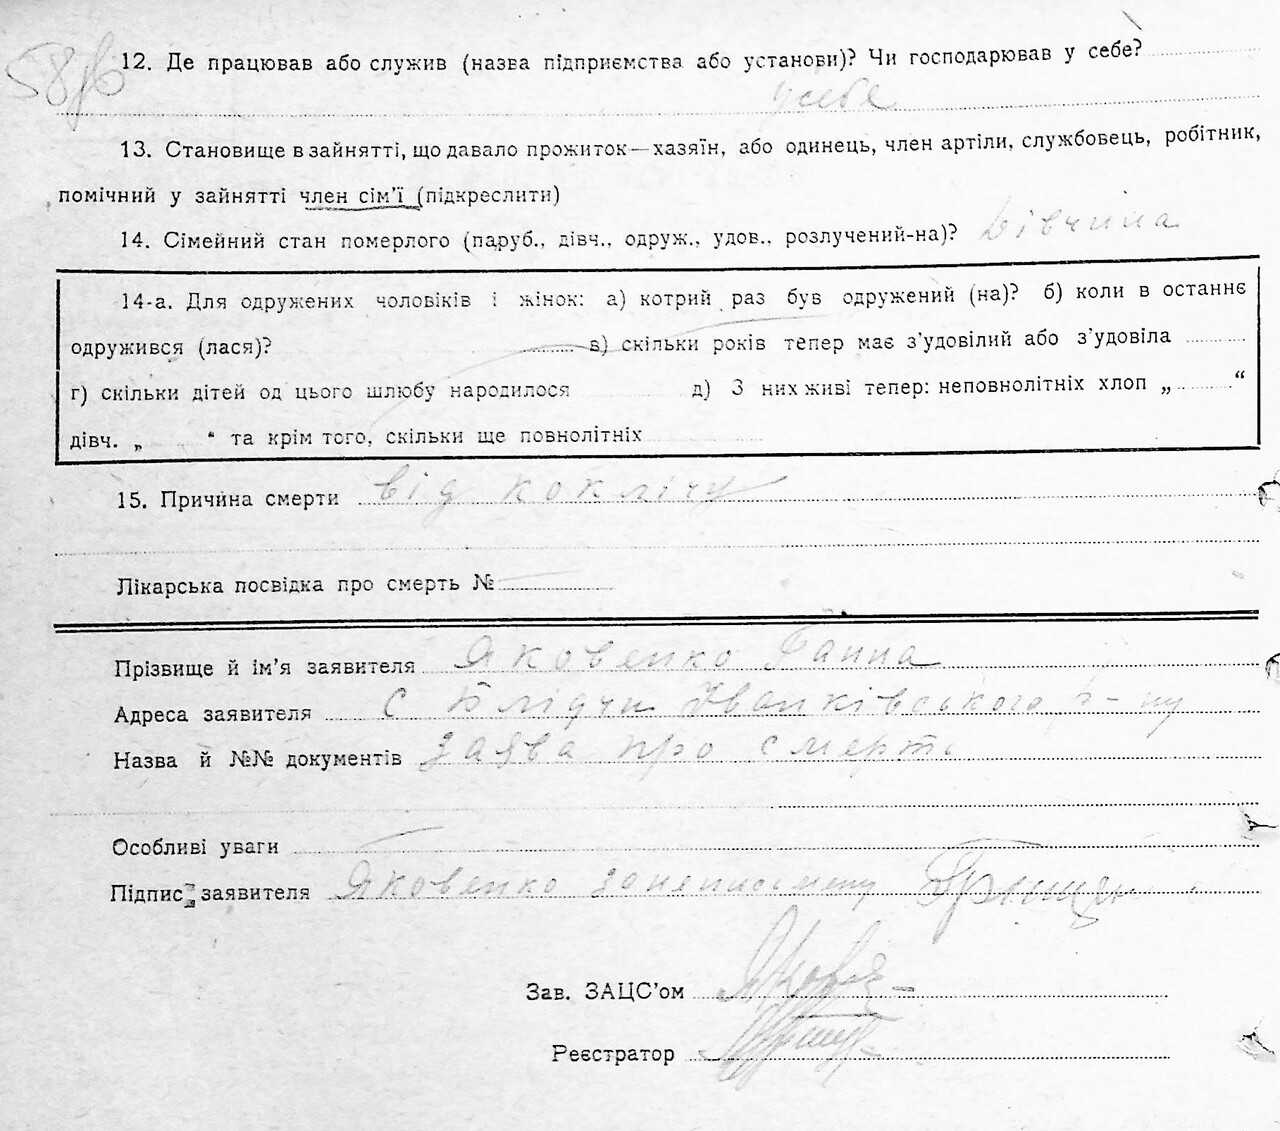 58
12. Де працював або служив (назва підприємства або установи)? Чи господарював у себе?
у себе
13. Становище в зайнятті, що давало прожиток—хазяїн, або одинець, член артіли, службовець, робітник,
помічний у зайнятті член сім'ї (підкреслити)
14. Сімейний стан померлого (паруб., дівч., одруж., удов., розлучений-на)? Дівчина
14-а. Для одружених чоловіків і жінок: а) котрий раз був одружений (на)? б) коли в останнє
одружився (лася)? в) скільки років тепер має з'удовілий або з'удовіла
г) скільки дітей од цього шлюбу народилося д) З них живі тепер: неповнолітніх хлоп „ “
дівч. „ “ та крім того, скільки ще повнолітніх
15. Причина смерти від коклічу
Лікарська посвідка про смерть №
Прізвище й ім'я заявителя Яковенко Ганна
Адреса заявителя с Блідчи Іванківського р-ну
Назва й №№ документів заява про смерть
Особливі уваги
Підпис заявителя Яковенко за неписьмену
Зав. ЗАЦС'ом
Реєстратор